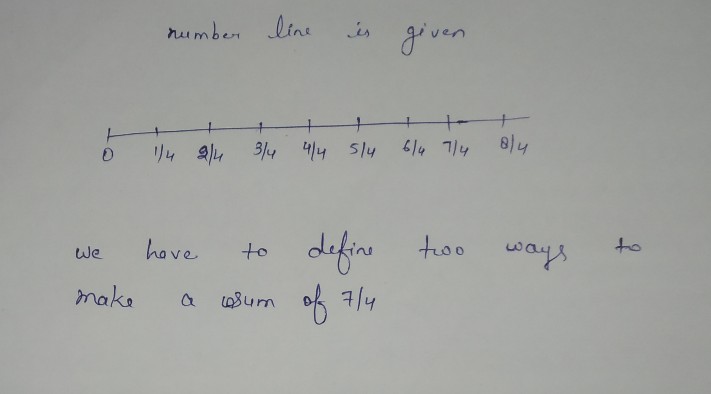 number line is given
0 1/4 2/4 3/4 4/4 5/4 6/4 7/4 8/4
we have to define two ways to
make a sum of 7/4